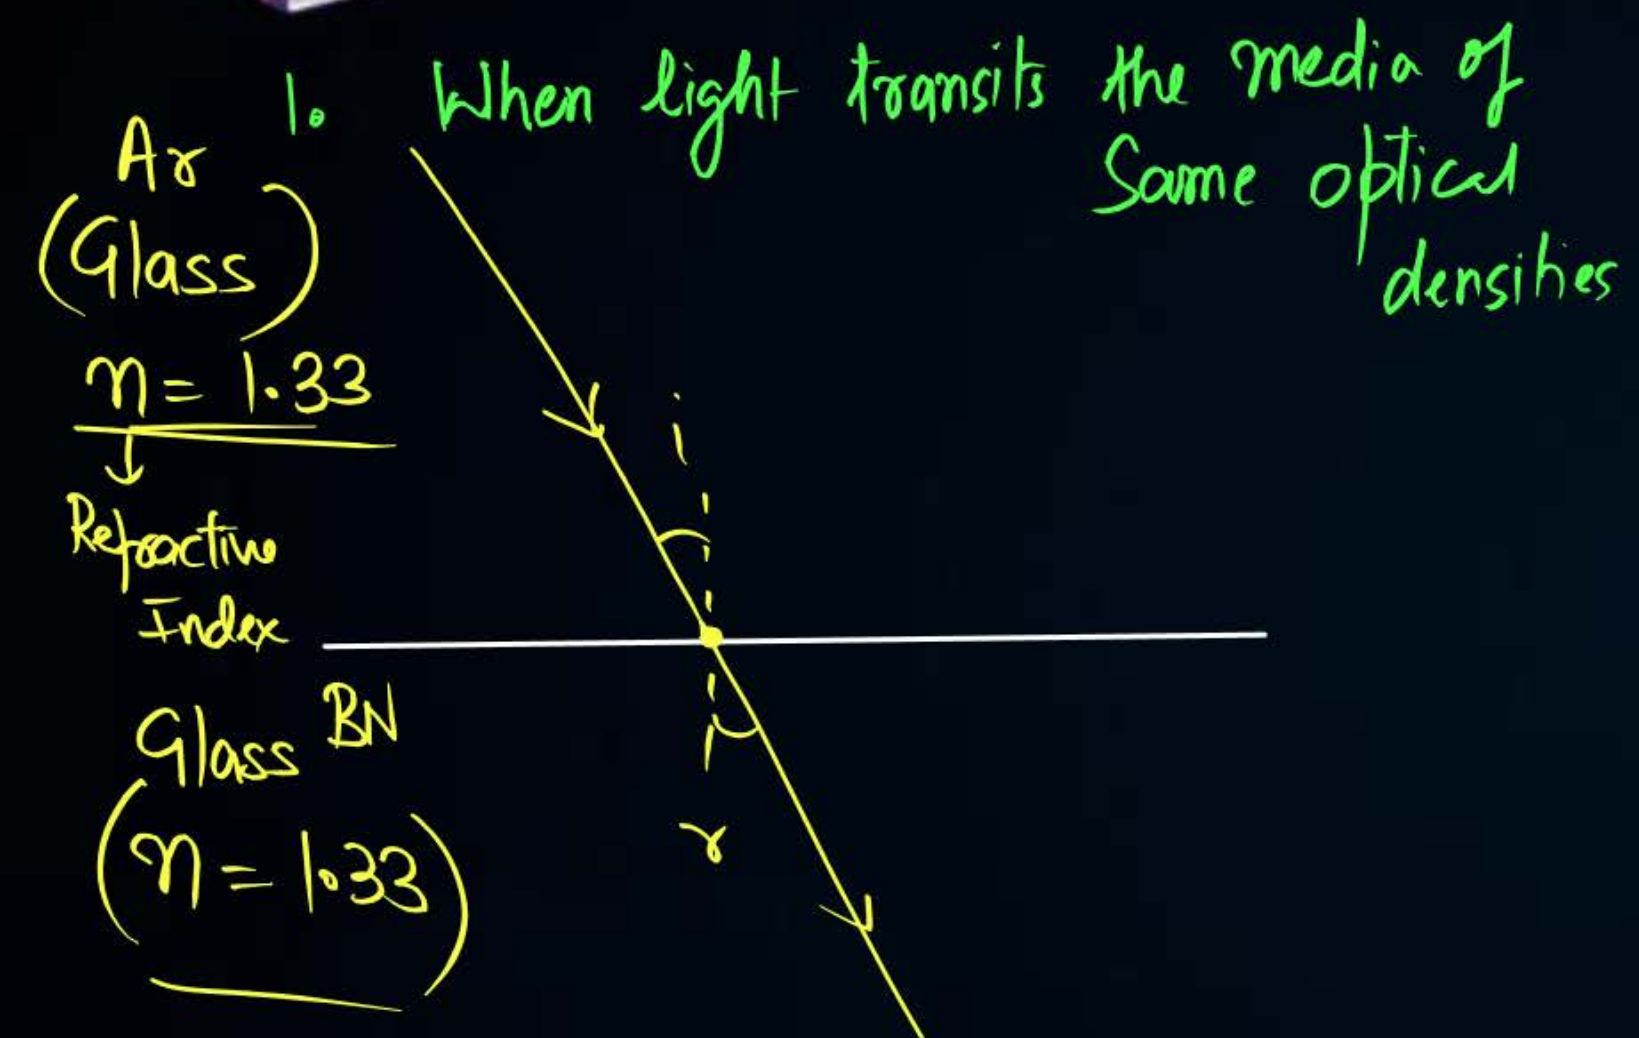 1. When light transits the media of
Same optical
densities
Ar
(Glass)
n = 1.33
Refractive
Index
i
Glass BN
(n = 1.33)
r